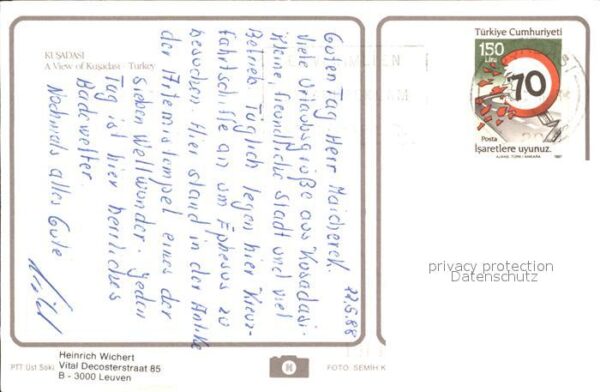 KUŞADASI
A View of Kuşadası - Turkey
22.5.88
Guten Tag Herr Maicherek.
Viele Urlaubsgrüße aus Kusadasi.
Kleine freundliche Stadt und viel
Betrieb. Täglich legen hier Kreuz-
fahrtschiffe an um Ephesus zu
besuchen. Hier stand in der Antike
der Artemistempel eines der
sieben Weltwunder. Jeden
Tag ist hier herrliches
Badewetter.
Nochmals alles Gute
Heinrich Wichert
Vital Decosterstraat 85
B - 3000 Leuven
PTT Üst Sok
FOTO: SEMİH K
Türkiye Cumhuriyeti
150
Lira
70
Posta
İşaretlere uyunuz.
AJANS-TÜRK / ANKARA 1987
privacy protection
Datenschutz